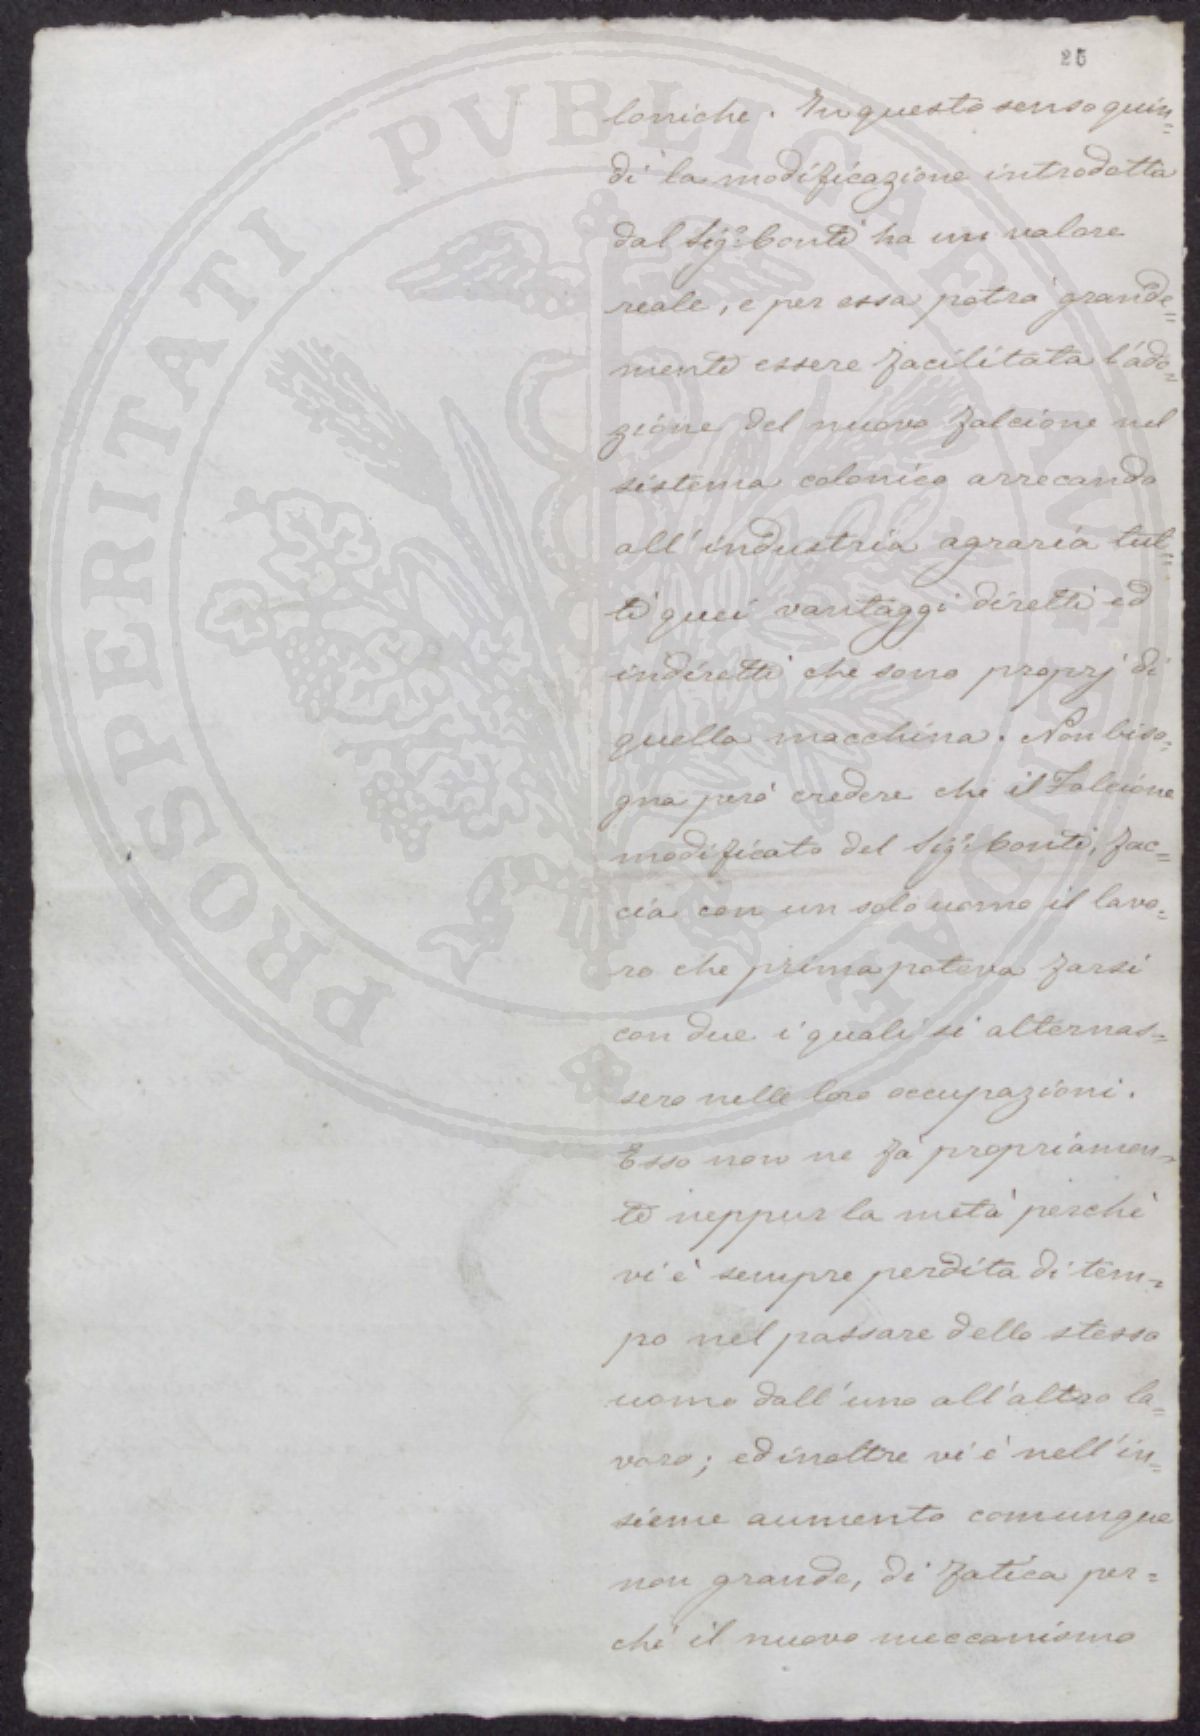 25
loniche. In questo senso quin=
di la modificazione introdotta
dal Sigr. Conti ha un valore
reale, e per essa potrà grande=
mente essere facilitata l'ado=
zione del nuovo falcione nel
sistema colonico arrecando
all'industria agraria tut=
ti quei vantaggi diretti ed
indiretti che sono proprj di
quella macchina. Non biso=
gna però credere che il Falcione
modificato del Sigr. Conti, fac=
cia con un solo uomo il lavo=
ro che prima poteva farsi
con due i quali si alternas=
sero nelle loro occupazioni.
Esso non ne fà propriamen=
te neppur la metà perchè
vi è sempre perdita di tem=
po nel passare dello stesso
uomo dall'uno all'altro la=
voro; ed inoltre vi è nell'in=
sieme aumento comunque
non grande, di fatica per=
chè il nuovo meccanismo
PROSPERITATI PVBLICAE AVGENDAE